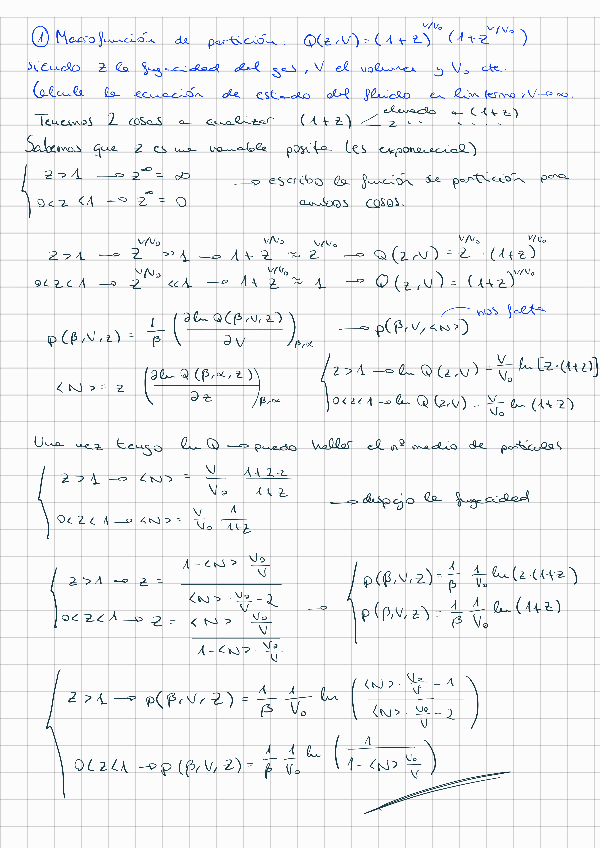 ① Macrofunción de partición. Q(z,V) = (1+z)^{V/V₀} (1+z^{V/V₀})
siendo z la fugacidad del gas, V el volumen y V₀ cte.
Calcule la ecuación de estado del fluido en lím termo, V→∞.
Tenemos 2 cosas a analizar (1+z) elevado → (1+z)
z
Sabemos que z es una variable positiva (es exponencial)
z>1 → z^∞ = ∞ → escribo la función de partición para
0<z<1 → z^∞ = 0 ambos casos.
z>1 → z^{V/V₀} >>1 → 1+z^{V/V₀} ≈ z^{V/V₀} → Q(z,V) = z^{V/V₀} · (1+z)^{V/V₀}
0<z<1 → z^{V/V₀} <<1 → 1+z^{V/V₀} ≈ 1 → Q(z,V) = (1+z)^{V/V₀}
nos falta
p(β,V,z) = 1/β (∂ln Q(β,V,z)/∂V)_{β,α} → p(β,V,<N>)
<N> = z (∂ln Q(β,α,z)/∂z)_{β,α}
z>1 → ln Q(z,V) = V/V₀ ln[z·(1+z)]
0<z<1 → ln Q(z,V) = V/V₀ ln(1+z)
Una vez tengo ln Q → puedo hallar el nº medio de partículas
z>1 → <N> = V/V₀ (1+2·z)/(1+z) → despejo la fugacidad
0<z<1 → <N> = V/V₀ 1/(1+z)
z>1 → z = (1-<N> V₀/V)/(<N>·V₀/V-2) → p(β,V,z) = 1/β 1/V₀ ln(z·(1+z)
0<z<1 → z = (<N> V₀/V)/(1-<N> V₀/V) p(β,V,z) = 1/β 1/V₀ ln(1+z)
z>1 → p(β,V,z) = 1/β 1/V₀ ln((<N>·V₀/V-1)/(<N>·V₀/V-2))
0<z<1 → p(β,V,z) = 1/β 1/V₀ ln(1/(1-<N> V₀/V))